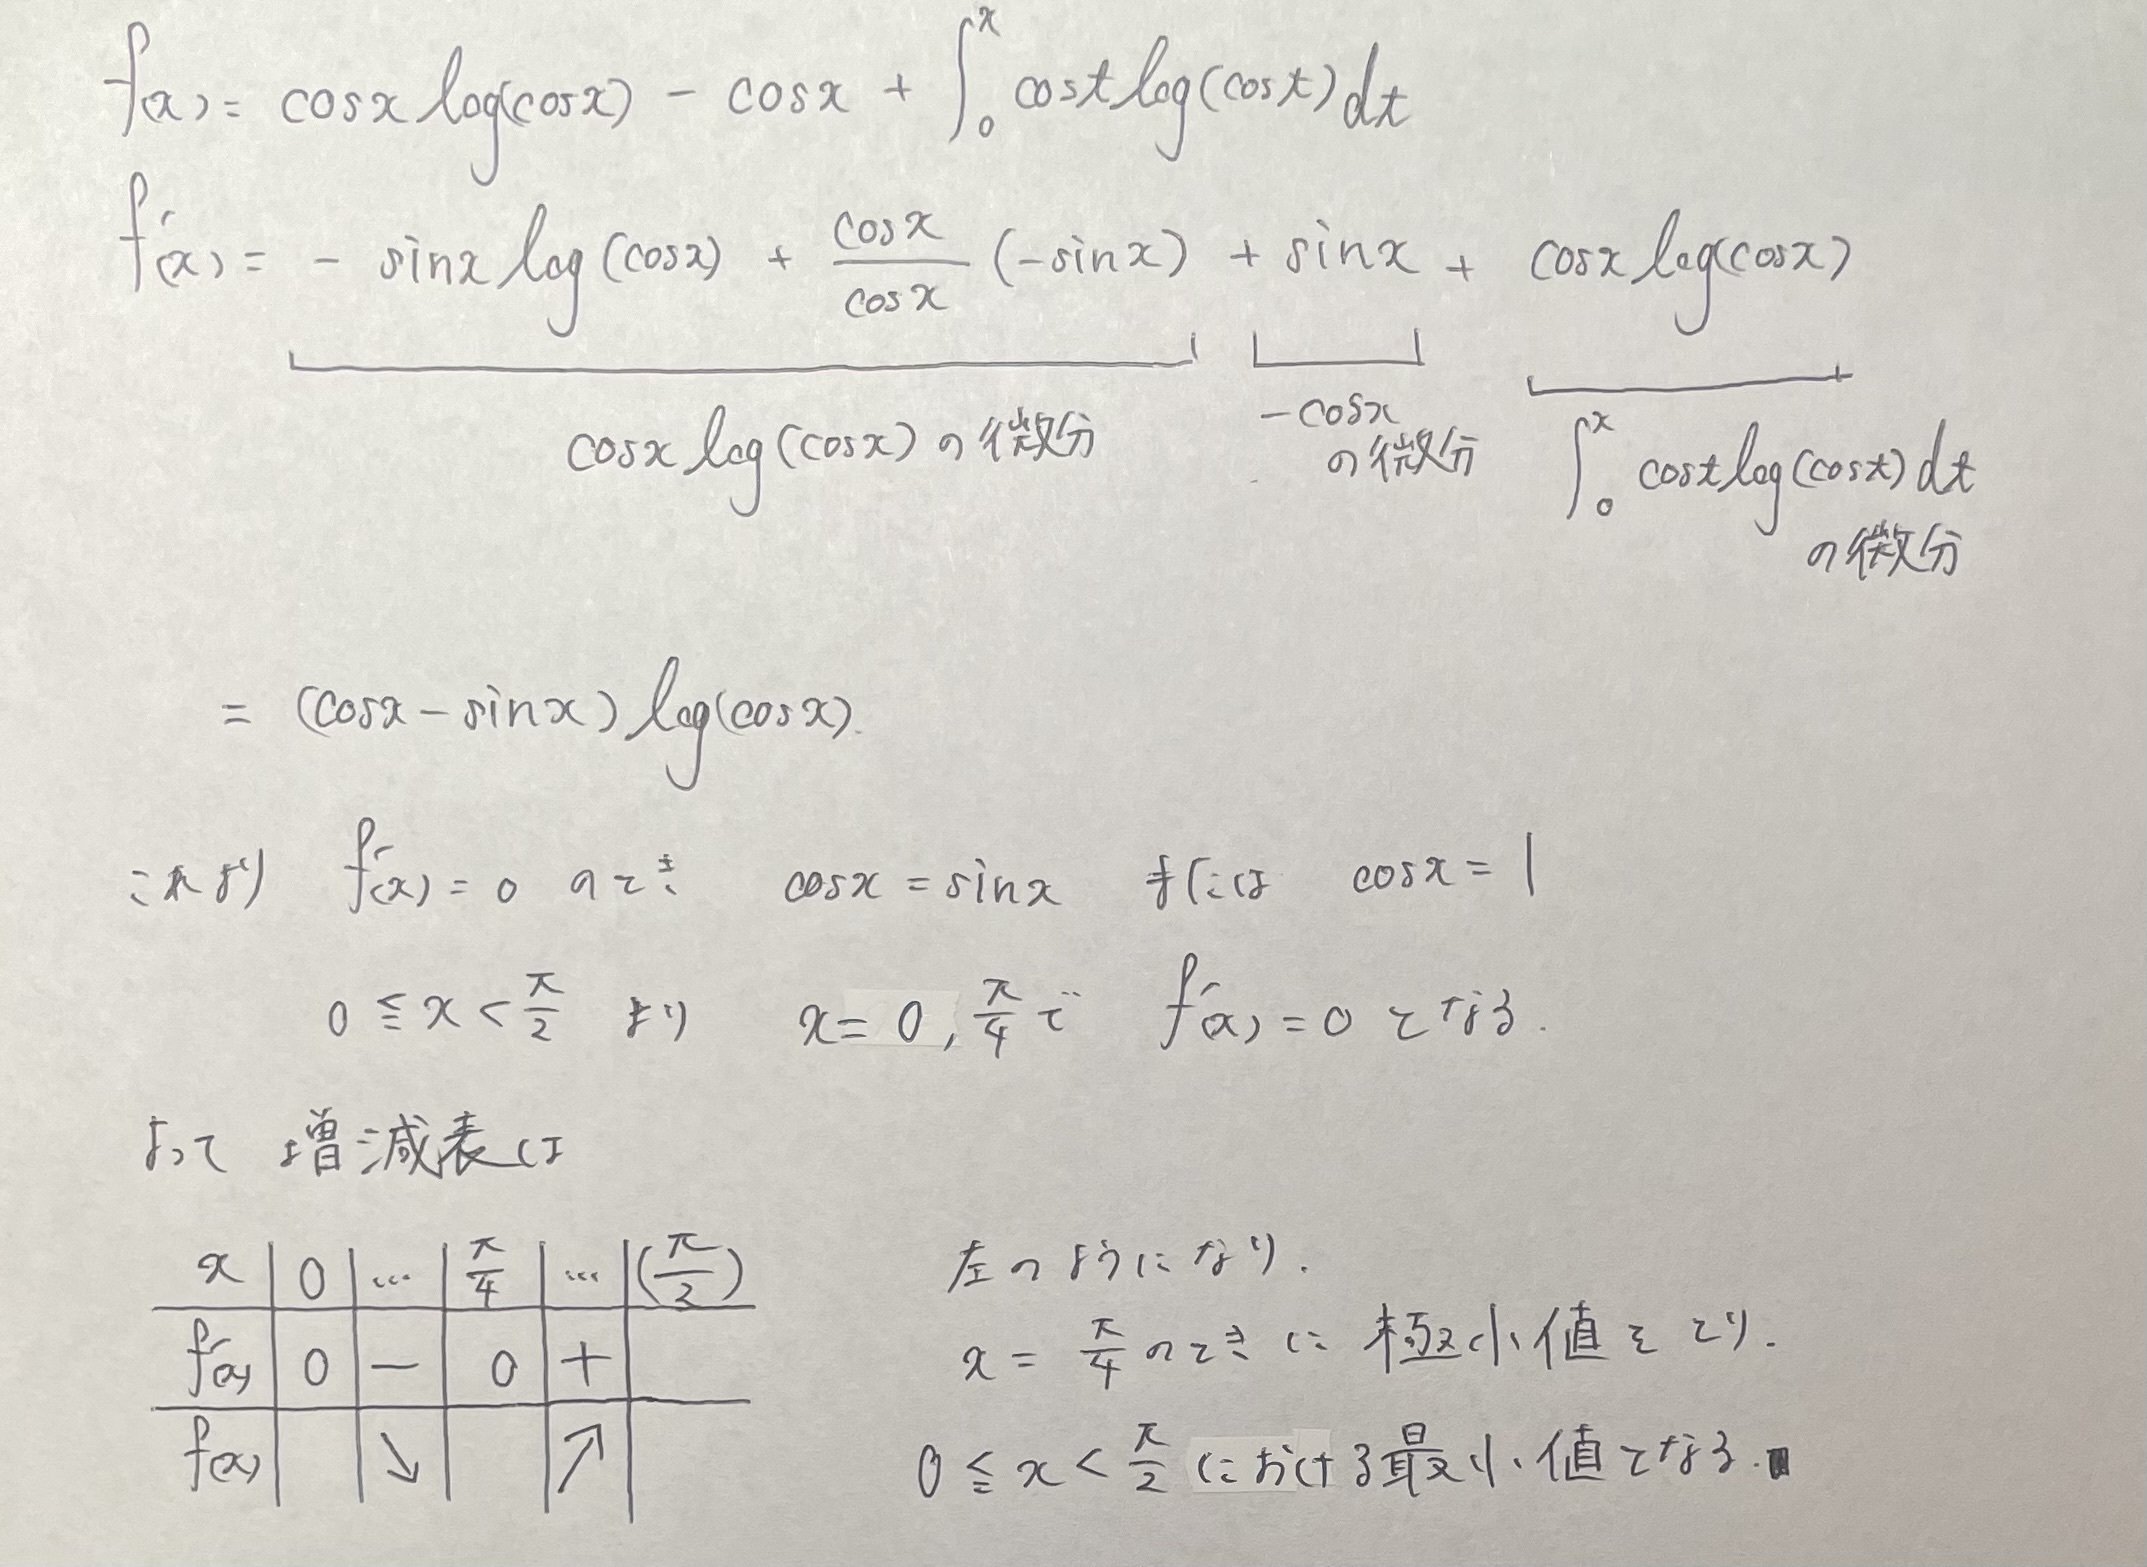 f(x) = cosx log(cosx) - cosx + ∫₀ˣ cost log(cost) dt
f'(x) = - sinx log(cosx) + cosx/cosx (-sinx) + sinx + cosx log(cosx)
cosx log(cosx) の微分
-cosx の微分
∫₀ˣ cost log(cost) dt の微分
= (cosx - sinx) log(cosx).
これより f'(x) = 0 のとき cosx = sinx または cosx = 1
0 ≦ x < π/2 より x = 0, π/4 で f'(x) = 0 となる.
よって 増減表は
x | 0 | … | π/4 | … | (π/2)
f'(x) | 0 | － | 0 | ＋ |
f(x) | | ↘ | | ↗ |
左のようになり.
x = π/4 のときに 極小値をとり.
0 ≦ x < π/2 における最小値となる. ■